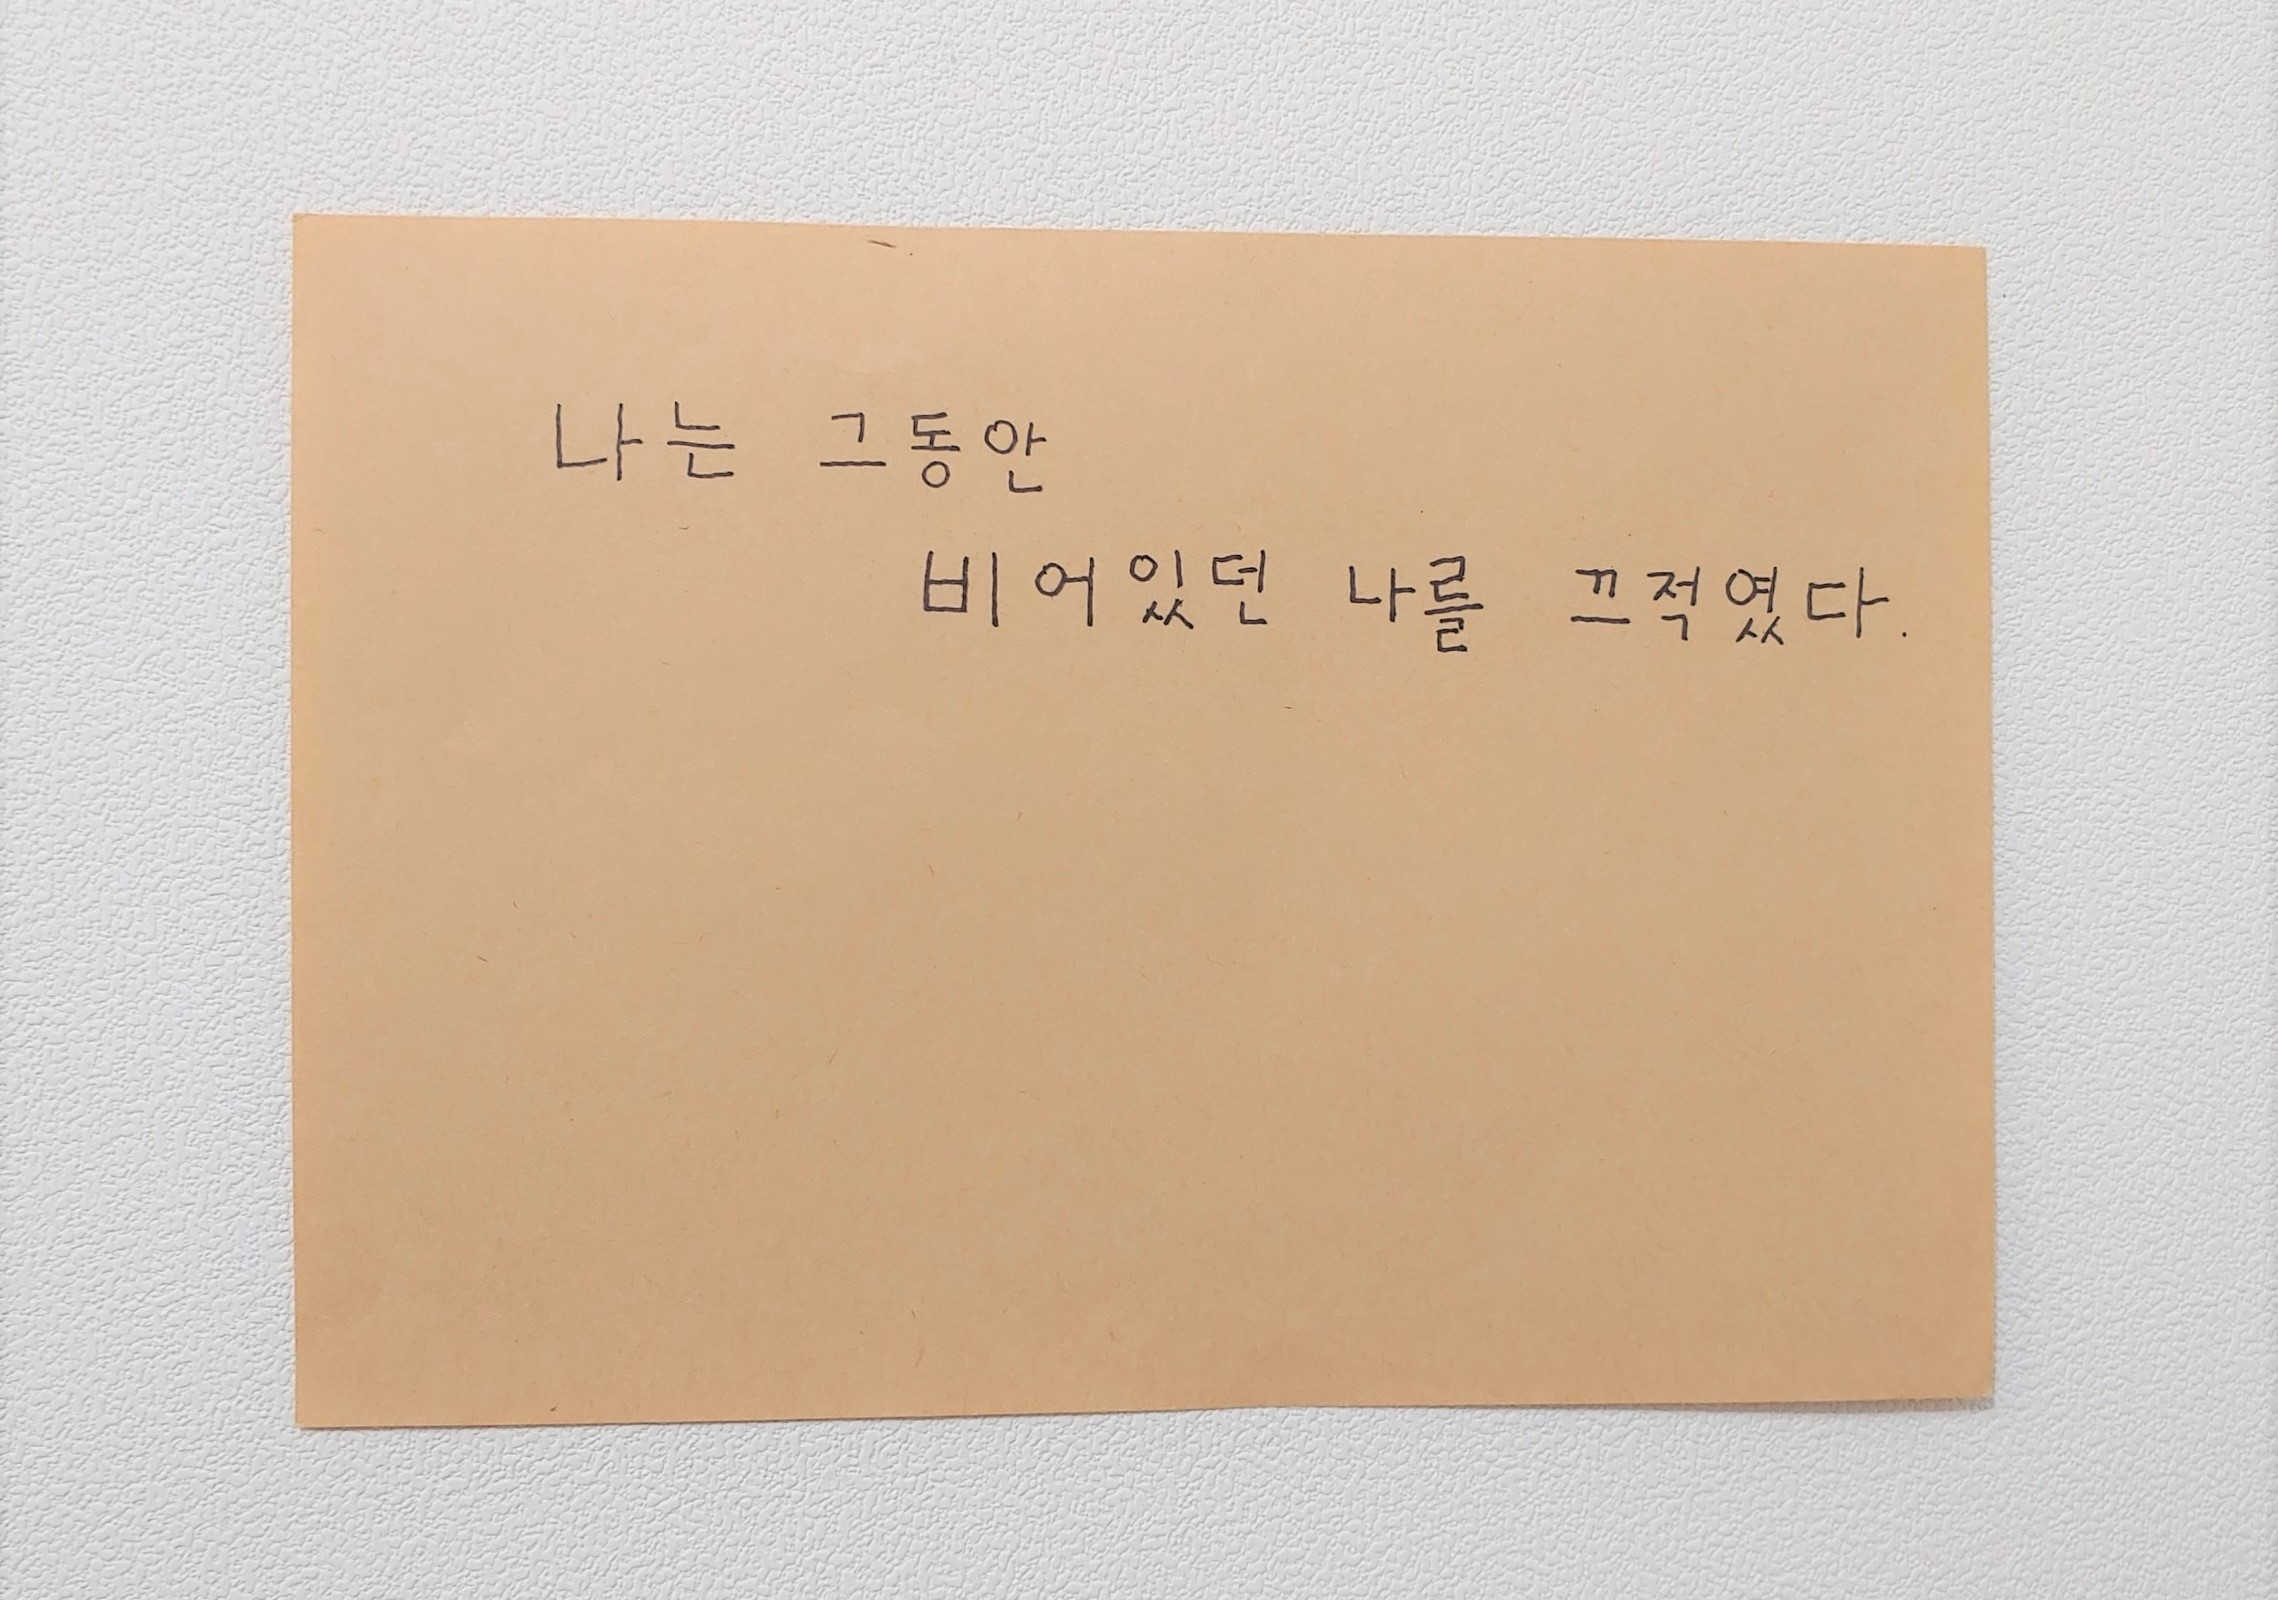 나는 그동안
비어있던 나를 끄적였다.